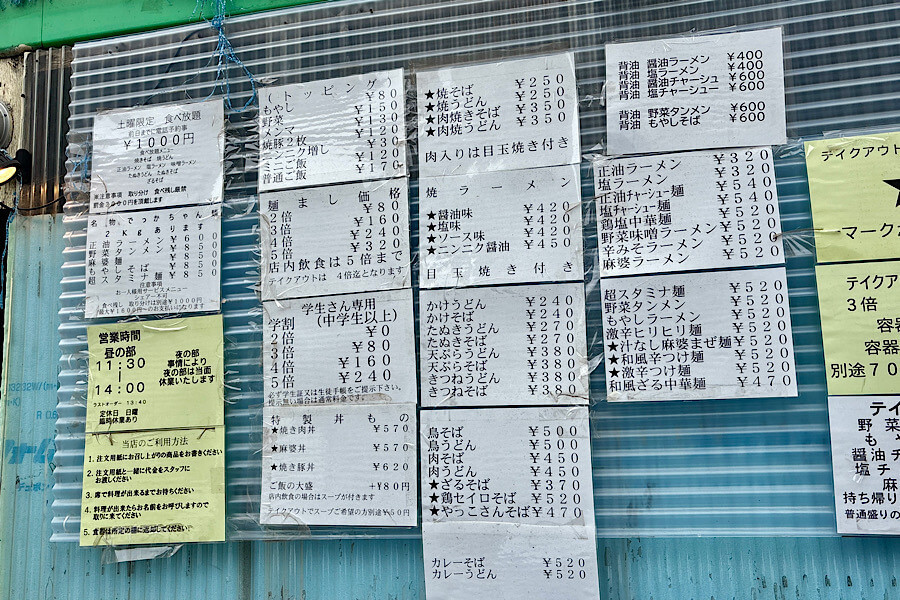 土曜限定 食べ放題
前日までに電話予約事
¥1000円
食べ放題メニュー
焼きそば 焼うどん
正油ラーメン 塩ラーメン 味噌ラーメン
たぬきうどん たぬきそば
ざるそば
※注意事項 取り分け 食べ残し厳禁
名物、でっかちゃん麺
2Kgあります
正油ラーメン ¥600
野菜タンメン ¥850
麻婆麺 ¥850
もやしそば ¥850
超スタミナ麺 ¥850
注意事項
お一人様用サービスメニュー
シェアー不可
食べ残し 取り分けは別途¥1000円
「最大¥1600円~のお支払いになります
営業時間
昼の部
11:30
|
14:00
夜の部
事情により
夜の部は当面
休業いたします
ラストオーダー 13:40
定休日 日曜
臨時休業あり
当店のご利用方法
1. 注文用紙にお召し上がりの商品をお書きください
2. 注文用紙と一緒に代金をスタッフに
お渡しください
3. 席で料理が出来るまでお待ちください
4. 料理が出来たらお名前をお呼びしますので
取りに来てください
5. 食器は所定の棚に返却してください
(トッピング)
もやし ¥80
野菜 ¥150
メンマ ¥130
焼豚2枚 ¥120
ニンニク増し ¥30
大ご飯 ¥170
普通ご飯 ¥120
麺まし価格
2倍 ¥80
3倍 ¥160
4倍 ¥240
5倍 ¥320
店内飲食は5倍まで
テイクアウトは 4倍迄となります
学生さん専用
学割 (中学生以上)
2倍 ¥0
3倍 ¥80
4倍 ¥160
5倍 ¥240
必ず学生証又は生徒手帳をご提示下さい。
提示無い場合は通常料金です。
特製丼もの
★焼き肉丼 ¥570
★麻婆丼 ¥570
★焼き豚丼 ¥620
ご飯の大盛 +¥80円
店内飲食の場合はスープが付きます
テイクアウトでスープご希望の方別途¥50円
★焼そば ¥250
★焼うどん ¥250
★肉焼きそば ¥350
★肉焼うどん ¥350
肉入りは目玉焼き付き
焼ラーメン
★醤油味 ¥420
★塩味 ¥420
★ソース味 ¥420
★ニンニク醤油 ¥450
目玉焼き付き
かけうどん ¥240
かけそば ¥240
たぬきうどん ¥270
たぬきそば ¥270
天ぷらうどん ¥380
天ぷらそば ¥380
きつねうどん ¥380
きつねそば ¥380
鳥そば ¥500
鳥うどん ¥500
肉そば ¥450
肉うどん ¥450
★ざるそば ¥370
★鶏セイロそば ¥520
★やっこさんそば ¥470
カレーそば ¥520
カレーうどん ¥520
背油 醤油ラーメン ¥400
背油 塩ラーメン ¥400
背油 醤油チャーシュー ¥600
背油 塩チャーシュー ¥600
背油 野菜タンメン ¥600
背油 もやしそば ¥600
正油ラーメン ¥320
塩ラーメン ¥320
正油チャーシュー麺 ¥540
塩チャーシュー麺 ¥540
鶏塩中華麺 ¥520
野菜味噌ラーメン ¥520
辛みそラーメン ¥520
麻婆ラーメン ¥520
超スタミナ麺 ¥520
野菜タンメン ¥520
もやしラーメン ¥520
激辛ヒリヒリ麺 ¥520
★汁なし麻婆まぜ麺 ¥520
★和風辛つけ麺 ¥520
★激辛つけ麺 ¥520
和風ざる中華麺 ¥470
テイクアウト
★
マークが
テイクア
3倍
容器
容器
別途70
テイ
野菜
もや
醤油チ
塩チャ
麻
持ち帰り
普通盛りの